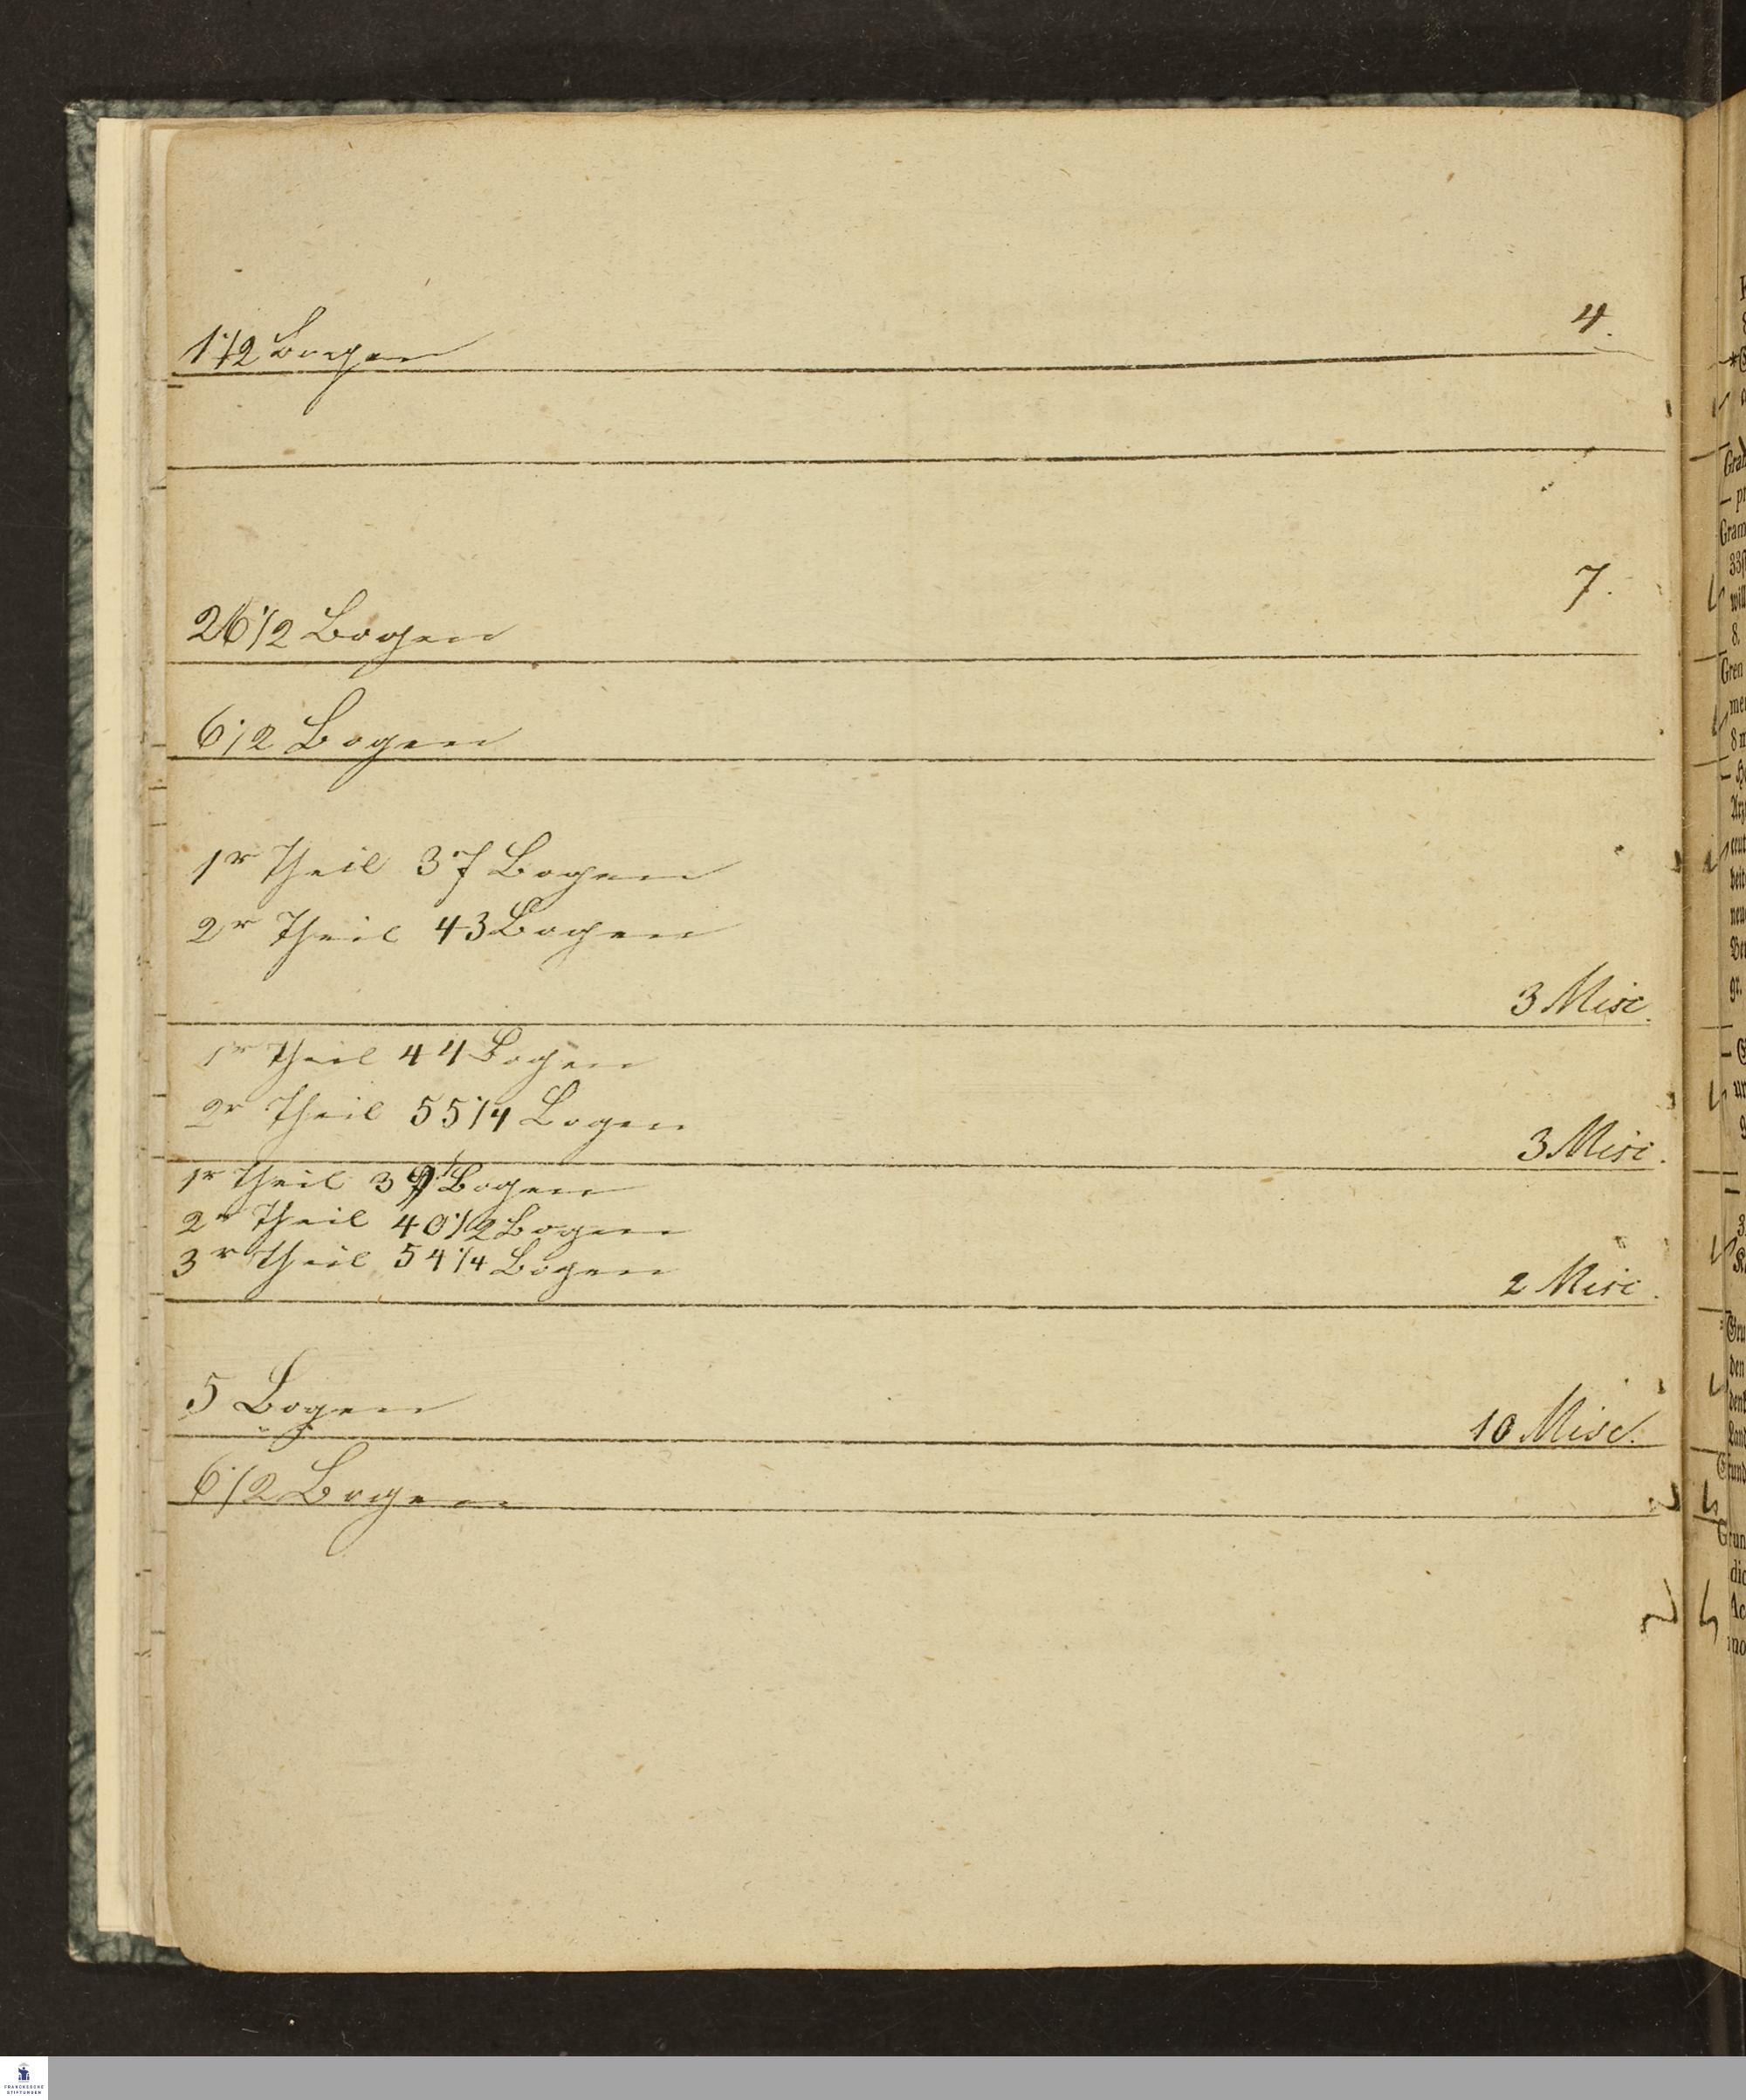 4.
1 1/2 Bogen
7.
26 1/2 Bogen
6 1/2 Bogen
1r Theil 37 Bogen
2r Theil 43 Bogen
3 Misc.
1r Theil 44 Bogen
2r Theil 55 1/4 Bogen
3 Misc.
1r Theil Bogen
2r Theil 40 1/2 Bogen
3r Theil 54 1/4 Bogen
2 Misc.
5 Bogen
10 Misc.
6 1/2 Bogen
FRANCKESCHE
STIFTUNGEN